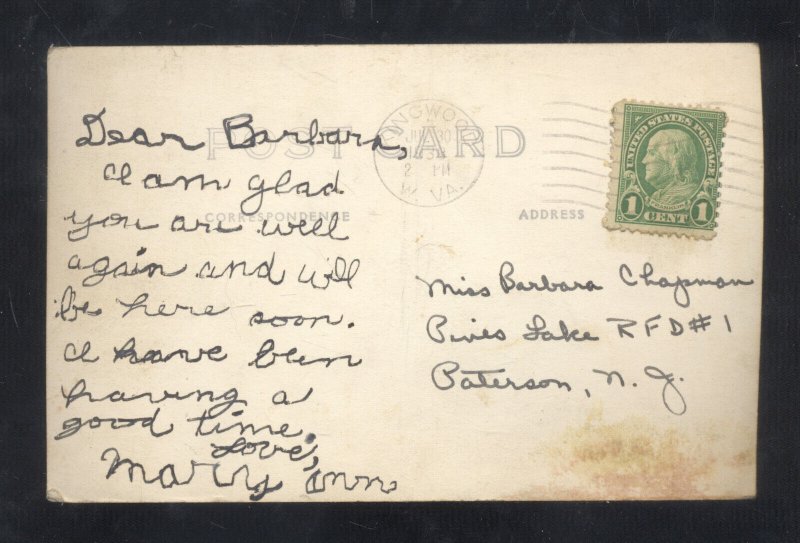 POST CARD
CORRESPONDENCE
ADDRESS
Dear Barbara,
I am glad
you are well
again and will
be here soon.
I have been
having a
good time.
Love,
Mary Ann
W. VA.
UNITED STATES POSTAGE
1 CENT 1
Miss Barbara Chapman
Pines Lake RFD #1
Paterson, N. J.